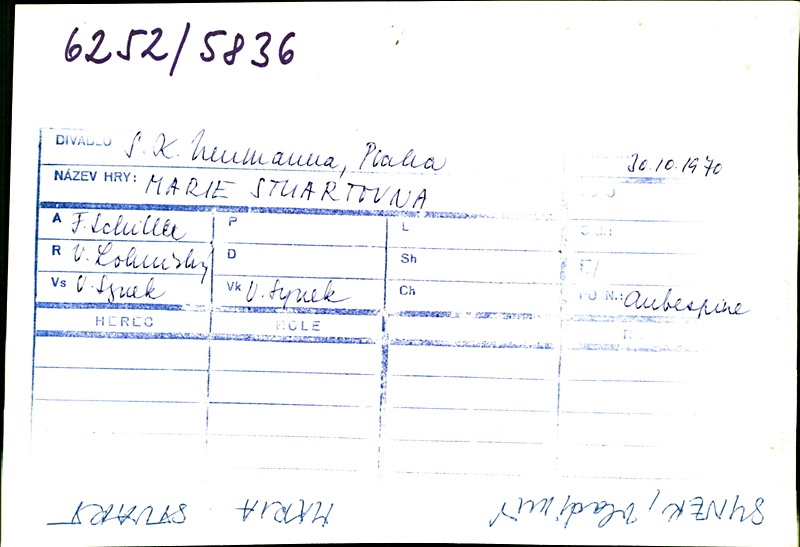 6252/5836
DIVADLO S. K. Neumanna, Praha 30.10.1970
NÁZEV HRY: MARIE STUARTOVNA
A F. Schiller P L
R V. D Sh
Vs V. Synek Vk V. Synek Ch Aubespine
HEREC ROLE
SYNEK, Vladimír MARIA STUART